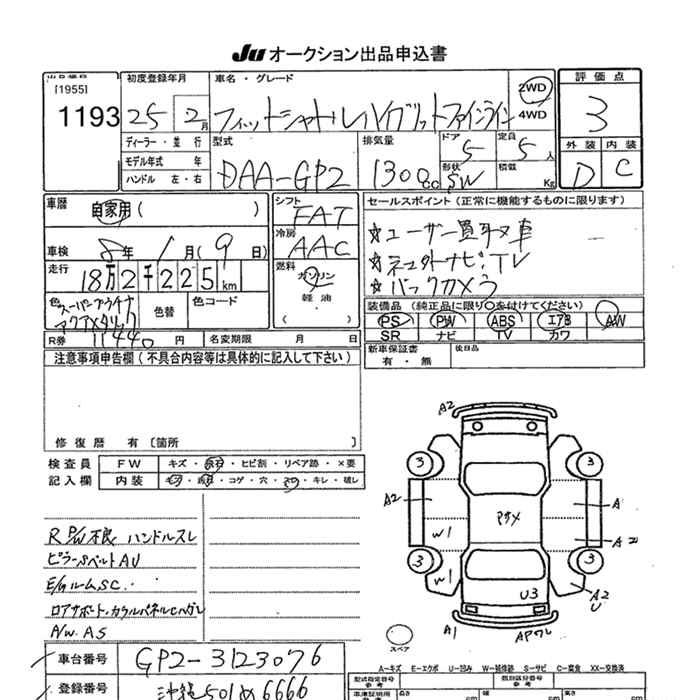 JU オークション出品申込書
出品番号 初度登録年月 車名・グレード 評価点
[1955]
1193 25 2月 フィットシャトルハイブリットファインライン 2WD 4WD 3
ディーラー・並行 型式 排気量 ドア 定員 外装 内装
モデル年式 年 DAA-GP2 1300cc 5 5人 D C
ハンドル 左・右 形状 SW 積載 Kg
車歴 自家用 ( ) シフト FAT セールスポイント(正常に機能するものに限ります)
車検 8年 1月(9日) 冷房 AAC ☆ユーザー買取車
走行 18万2千225km 燃料 ガソリン ☆ナビ・TV
軽油 ☆バックカメラ
( )
色 色替 色コード 装備品(純正品に限り○を付けてください)
PS PW ABS エアB AW
SR ナビ TV カワ
R券 11440円 名変期限 月 日 新車保証書 後日品
有・無
注意事項申告欄(不具合内容等は具体的に記入して下さい)
修復歴 有 〔箇所 〕
検査員 FW キズ・飛石・ヒビ割・リペア跡・×要
記入欄 内装 キズ・汚れ・コゲ・穴・スレ・キレ・破レ
R P/W不良 ハンドルスレ
ピラーSベルトAU
E/GルームSC.
ロアサポート・カウルパネルCハガレ
A/W. AS
A2
3 3
A2 A
アサメ
W1 A2
W1
3 3
U3 A2
U
スペア A1 APワレ
A-キズ E-エクボ U-凹み W-補修跡 S-サビ C-腐食 XX-交換済
車台番号 GP2-3123076 型式指定番号 類別区分番号
参考 参考
登録番号 沖縄501め6666 長さ 幅 高さ
cm cm cm